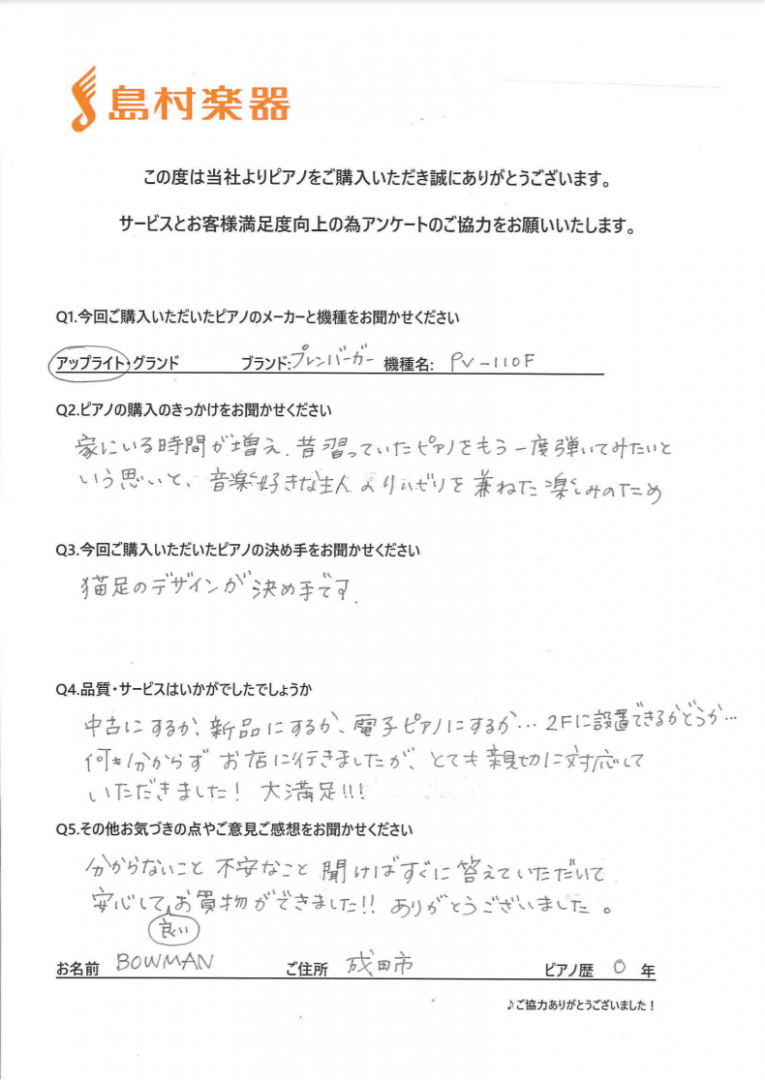 島村楽器
この度は当社よりピアノをご購入いただき誠にありがとうございます。
サービスとお客様満足度向上の為アンケートのご協力をお願いいたします。
Q1.今回ご購入いただいたピアノのメーカーと機種をお聞かせください
アップライト・グランド ブランド:プレンバーガー 機種名: PV-110F
Q2.ピアノの購入のきっかけをお聞かせください
家にいる時間が増え、昔習っていたピアノをもう一度弾いてみたいと
いう思いと、音楽好きな主人よりリハビリを兼ねた楽しみのため
Q3.今回ご購入いただいたピアノの決め手をお聞かせください
猫足のデザインが決め手です.
Q4.品質・サービスはいかがでしたでしょうか
中古にするか、新品にするか、電子ピアノにするか… 2Fに設置できるかどうか…
何も分からずお店に行きましたが、とても親切に対応して
いただきました! 大満足!!!
Q5.その他お気づきの点やご意見ご感想をお聞かせください
分からないこと 不安なこと 聞けばすぐに答えていただいて
安心してお買物ができました!! ありがとうございました。
良い
お名前 BOWMAN ご住所 成田市 ピアノ歴 0 年
♪ご協力ありがとうございました!